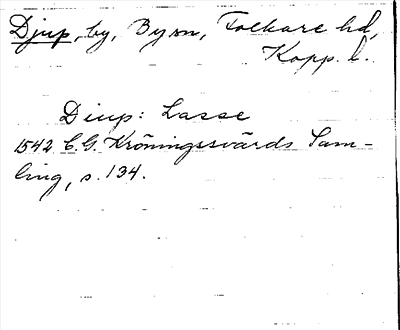 Djup, by, By sn, Folkare hd,
Kopp. l.
Diup: Lasse
1542 C.G. Kröningssvärds Sam-
ling, s. 134.